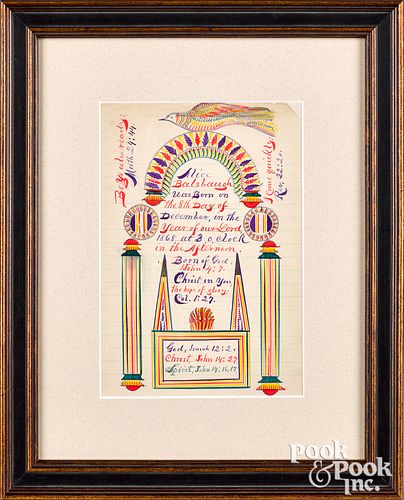 Be ye also ready.
Math. 24:44
Come quickly.
Rev. 22:20.
Alice
Balsbaugh
Was Born on
the 8th Day of
December, in the
Year of our Lord
1868, at 3 o, clock
in the Afternoon.
Born of God.
1 John 4:7.
Christ in You
the hope of glory.
Col. 1:27.
God, Isaiah 12:2.
Christ, John 14:27
Spirit, John 14:16,17.
Pook
& Pook
Inc.